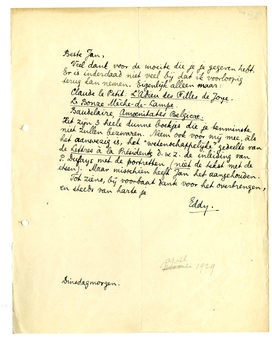 Beste Jan,
Veel dank voor de moeite die je je gegeven hebt.
Er is inderdaad niet veel bij dat ik voorloopig
terug kan nemen. Eigenlijk alleen maar:
Claude le Petit. L'Adieu des Filles de Joye.
Le Bonze Miche-de-Lampe.
Baudelaire, Amoenitates Belgicae.
Het zijn 3 heele dunne boekjes die je tenminste
niet zullen bezwaren. Neem ook voor mij mee, als
het aanwezig is, het "wetenschappelijke" gedeelte van
de Lettres à la Présidente, d.w.z. de inleiding van
P. Dufays met de portretten (niet de tekst met de
etsen). Maar misschien heeft Jan het aangehouden.
Tot ziens, bij voorbaat dank voor het overbrengen,
en steeds van harte je
Eddy.
1929
Dinsdagmorgen.